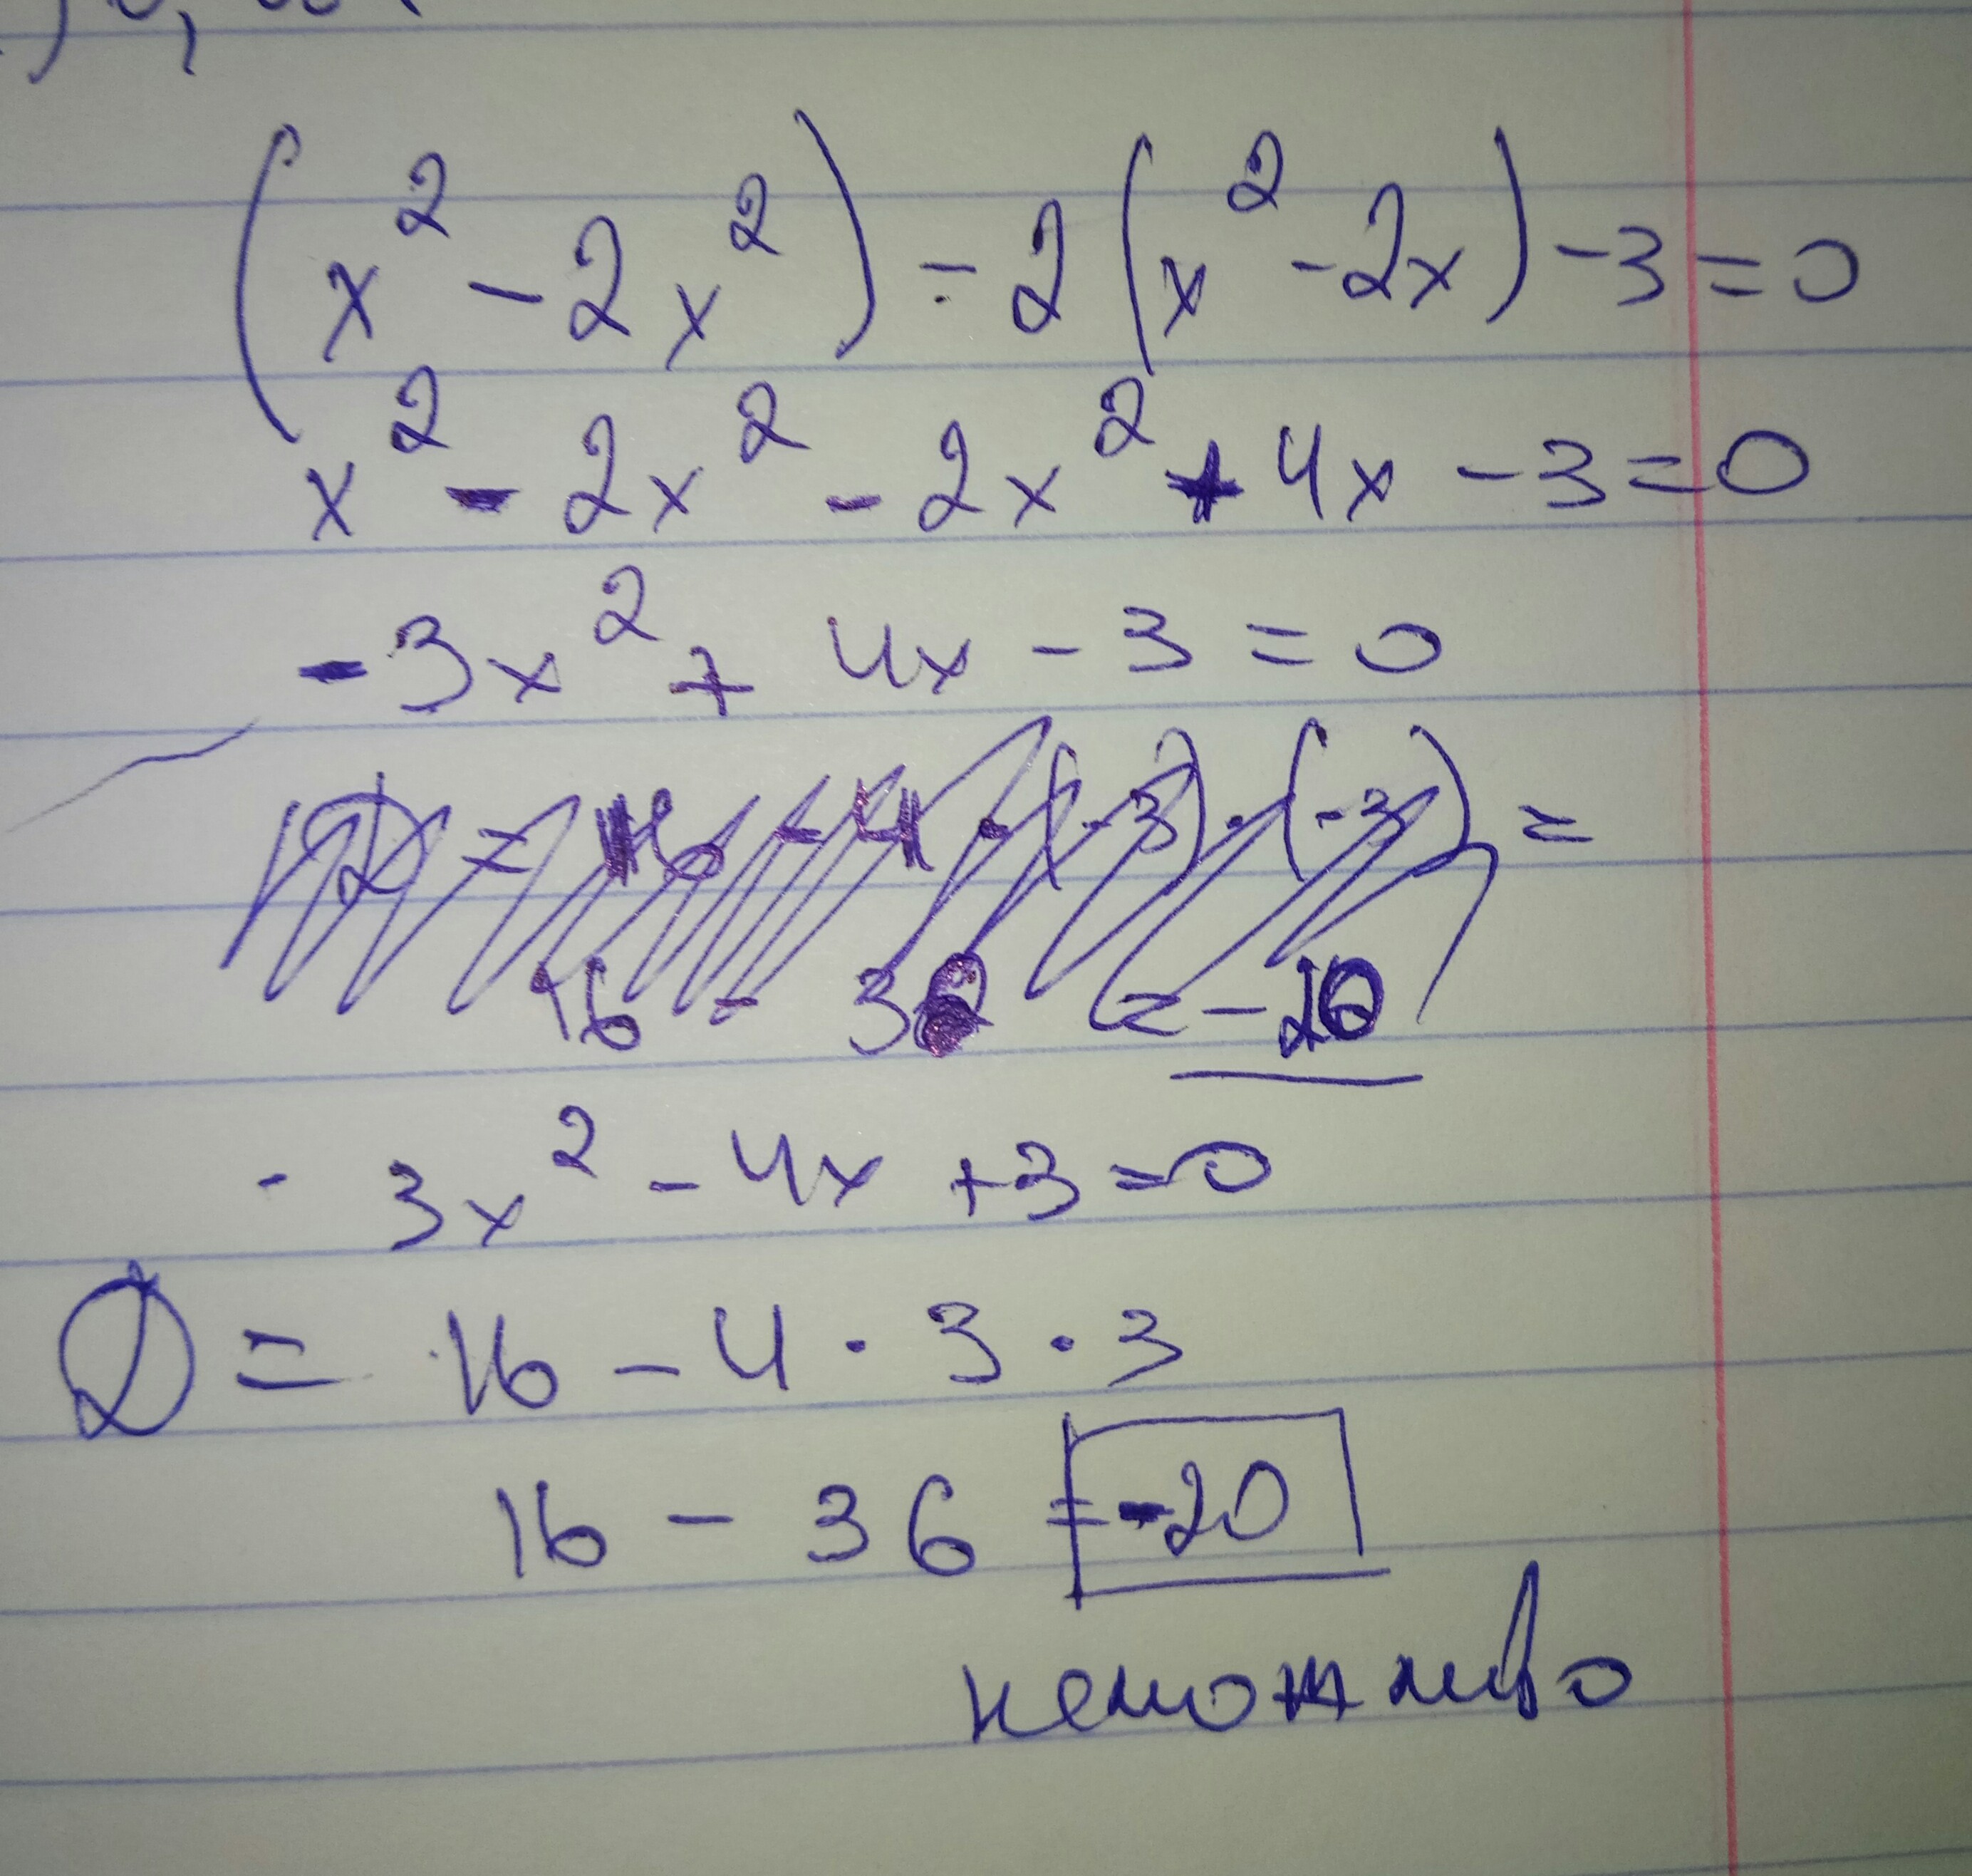 (x² - 2x²) - 2(x² - 2x) - 3 = 0
x² - 2x² - 2x² + 4x - 3 = 0
-3x² + 4x - 3 = 0
D = 16 - 4 · (-3) · (-3) =
16 - 36 = -20
- 3x² - 4x + 3 = 0
D = 16 - 4 · 3 · 3
16 - 36 = -20
неможливо